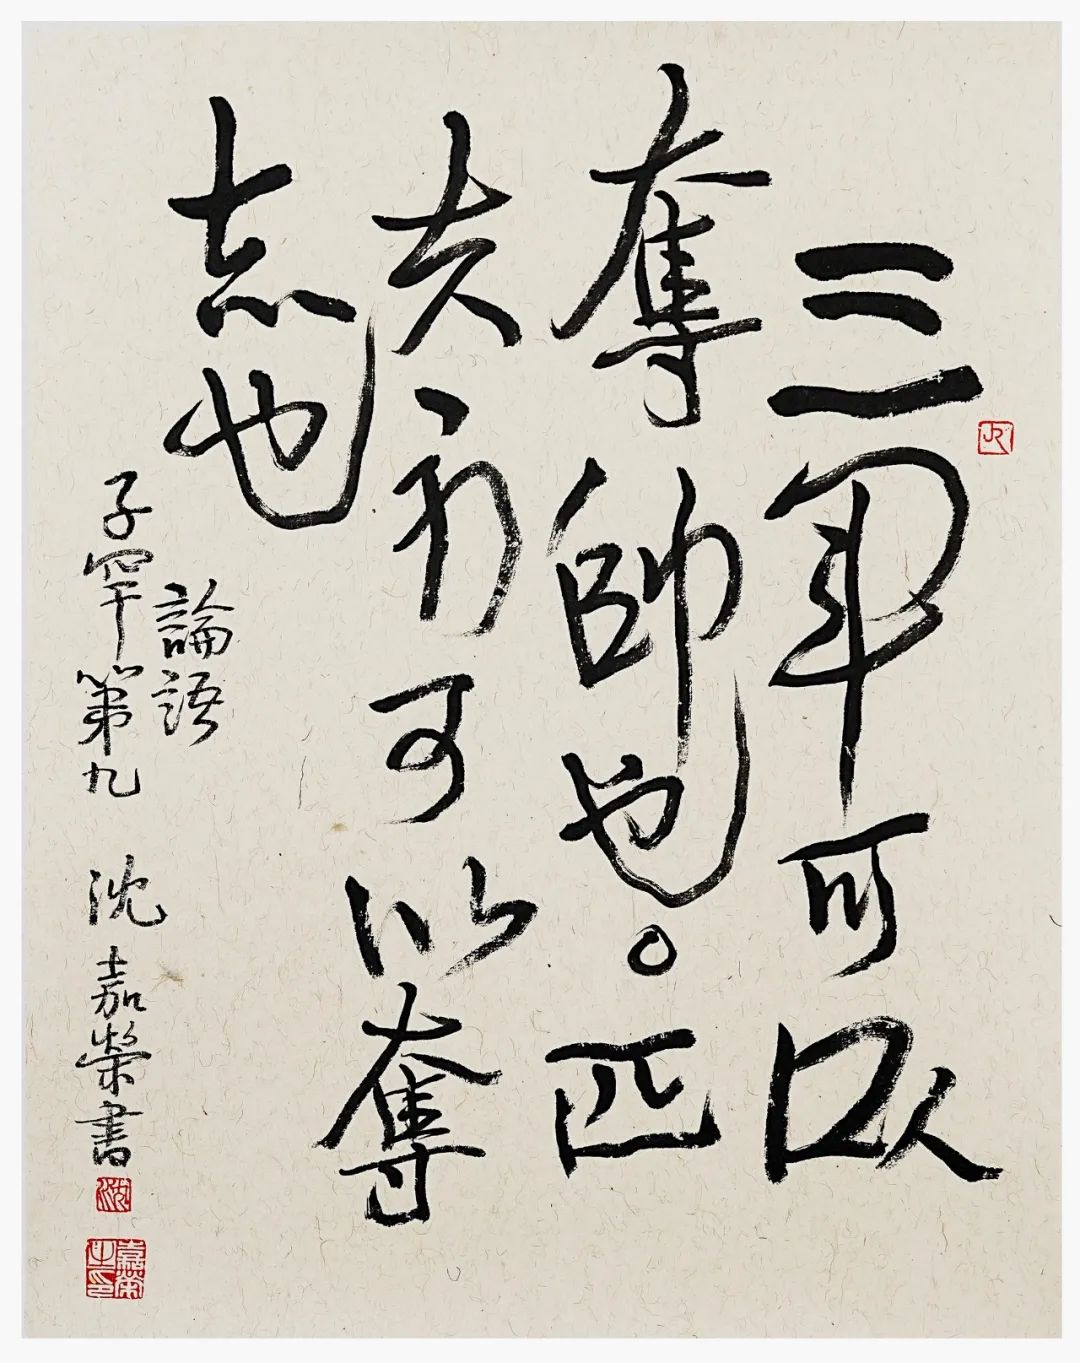 三軍可以
奪帥也。匹
夫不可以奪
志也
論語
子罕第九 沈嘉榮書
沈
嘉榮之印